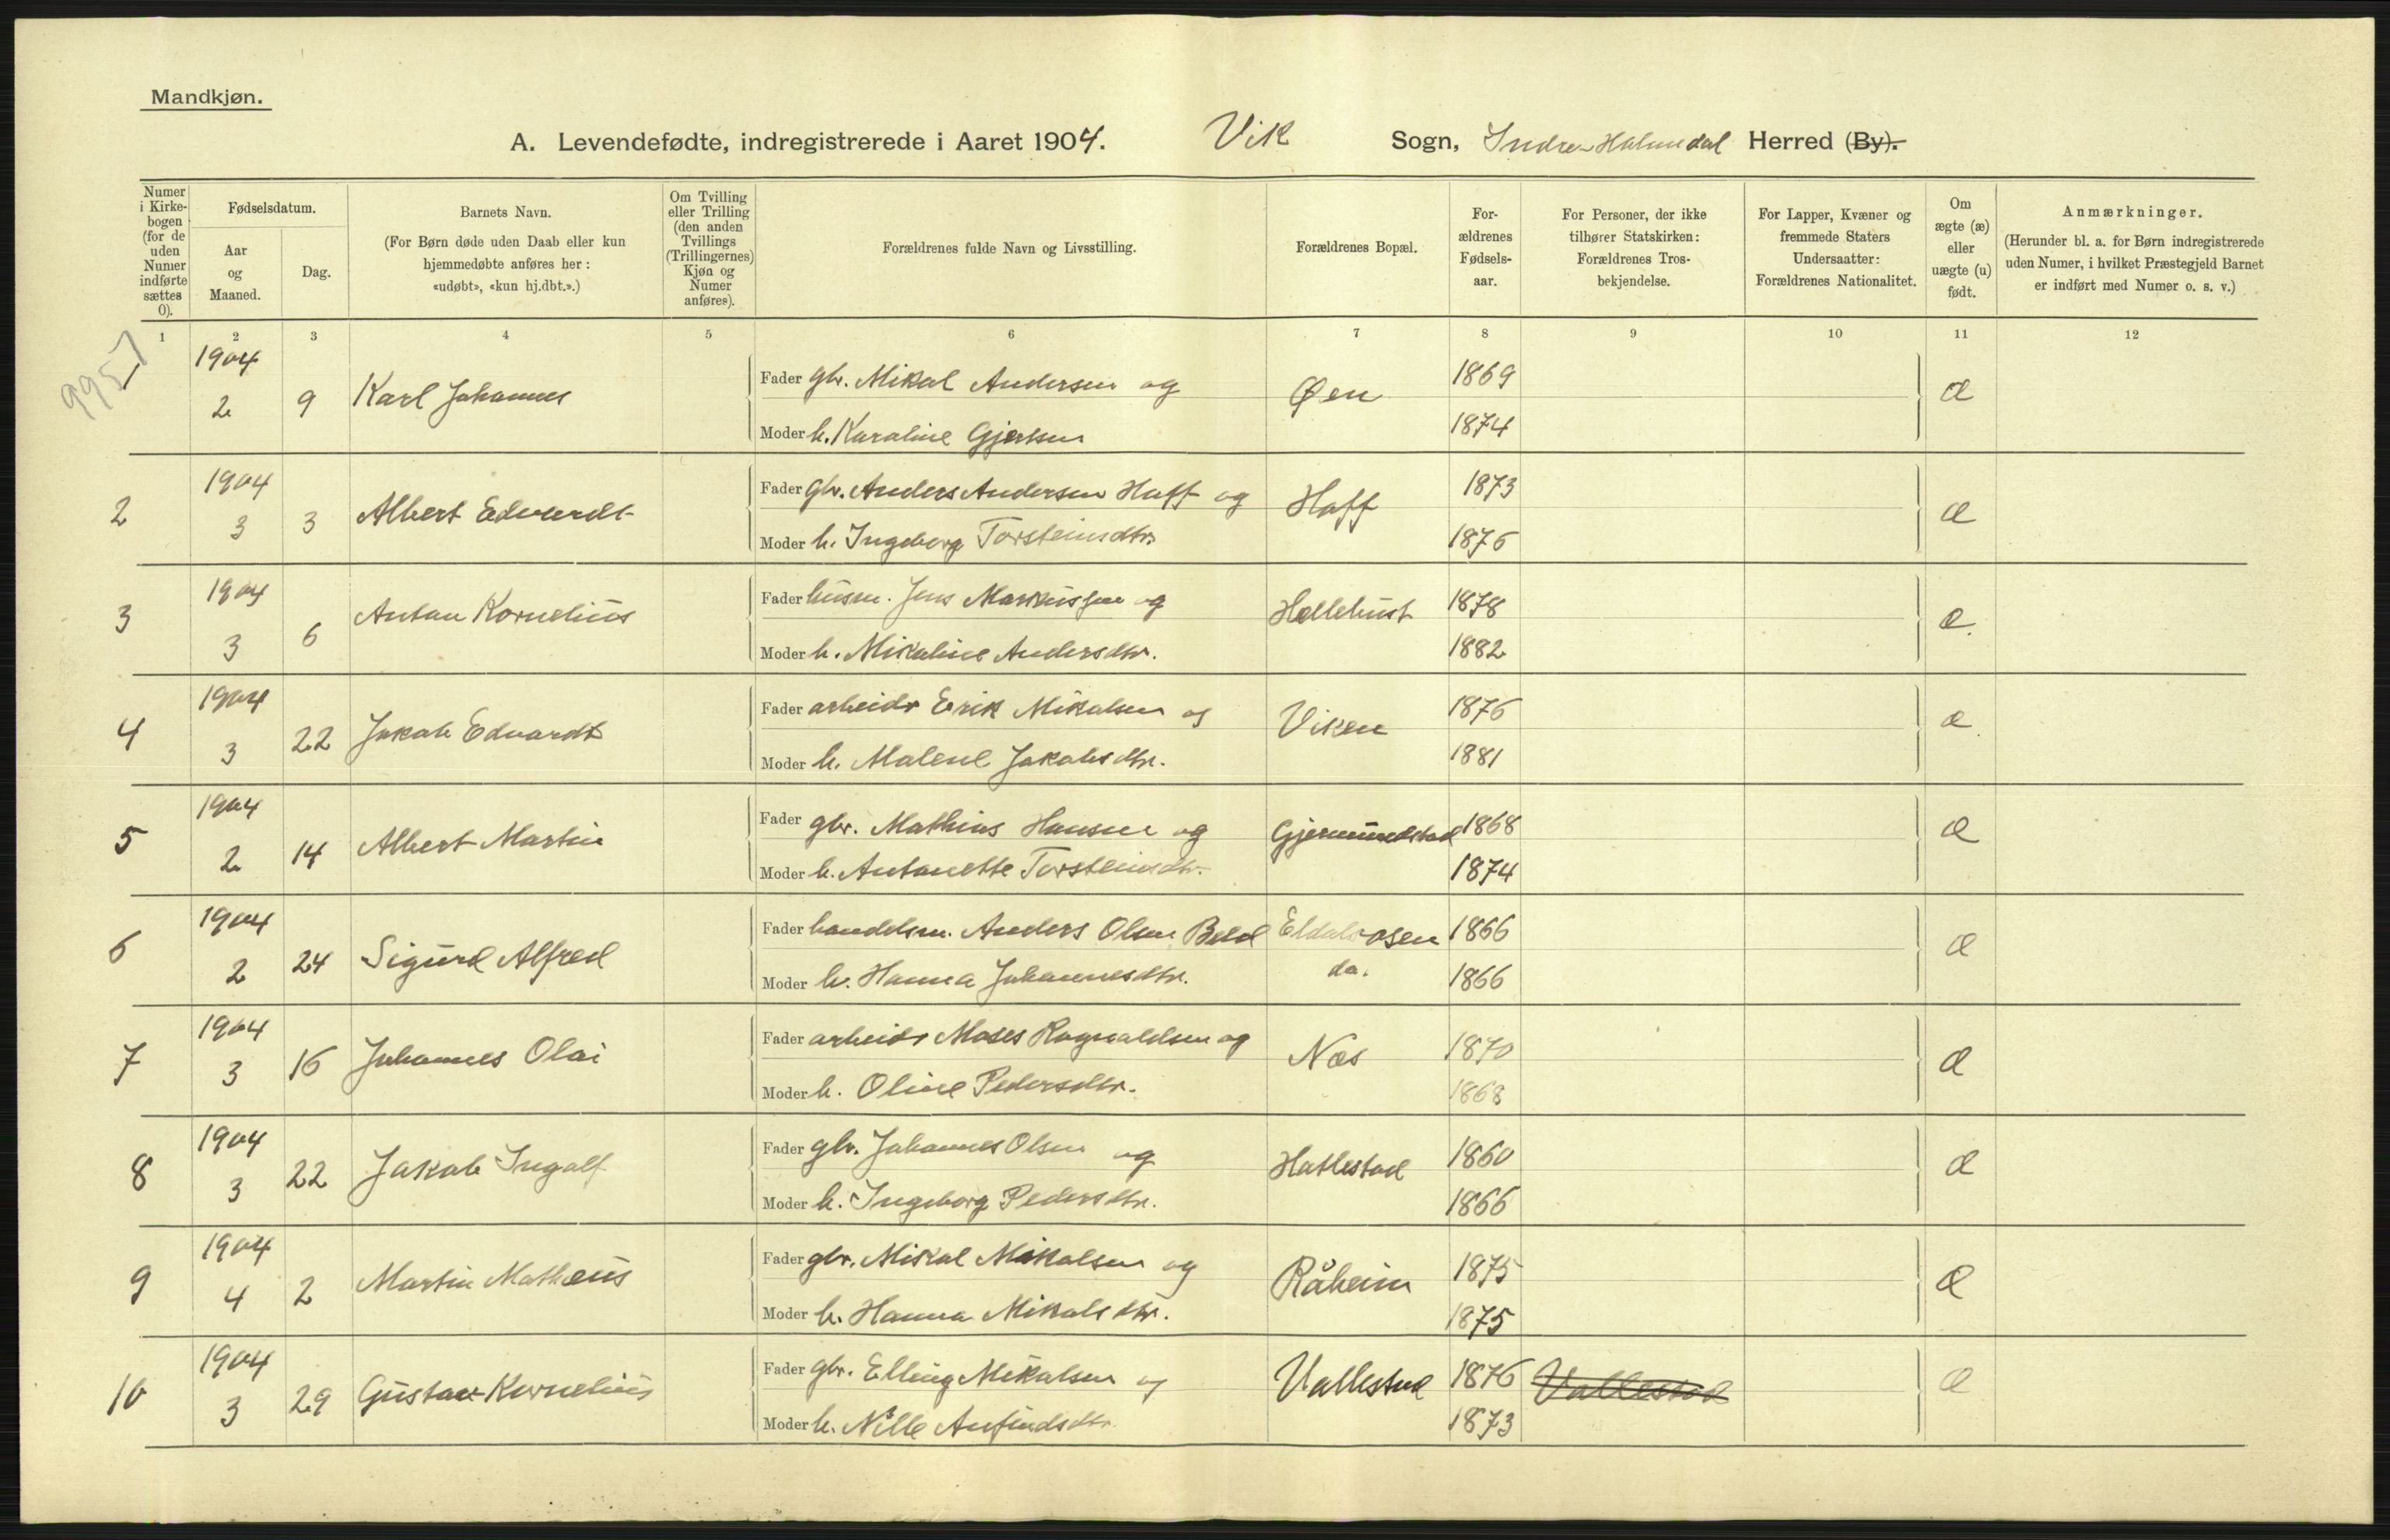 Mandkjøn.
A. Levendefødte, indregistrerede i Aaret 1904. Vik Sogn, Indre Holmedal Herred (By).
Numer i Kirkebogen (for de uden Numer indførte sættes 0).
Fødselsdatum.
Aar og Maaned.
Dag.
Barnets Navn.
(For Børn døde uden Daab eller kun hjemmedøbte anføres her: «udøbt», «kun hj.dbt.».)
Om Tvilling eller Trilling (den anden Tvillings (Trillingernes) Kjøn og Numer anføres).
Forældrenes fulde Navn og Livsstilling.
Forældrenes Bopæl.
Forældrenes Fødselsaar.
For Personer, der ikke tilhører Statskirken: Forældrenes Trosbekjendelse.
For Lapper, Kvæner og fremmede Staters Undersaatter: Forældrenes Nationalitet.
Om ægte (æ) eller uægte (u) født.
Anmærkninger.
(Herunder bl. a. for Børn indregistrerede uden Numer, i hvilket Præstegjeld Barnet er indført med Numer o. s. v.)
1 2 3 4 5 6 7 8 9 10 11 12
9957
1 1904 2 9 Karl Johannes Fader gbr. Mikal Andersen og Øen 1869 æ
Moder h. Karoline Gjertsen 1874
2 1904 3 3 Albert Edvardt Fader gbr. Anders Andersen Haff og Haff 1873 æ
Moder h. Ingeborg Torsteinsdtr. 1876
3 1904 3 6 Anton Kornelius Fader husm. Jens Markussen og Hellehust 1878 æ.
Moder h. Mikaline Andersdtr. 1882
4 1904 3 22 Jakob Edvardt Fader arbeidr Erik Mikalsen og Viken 1876 æ.
Moder h. Malene Jakobsdtr. 1881
5 1904 2 14 Albert Martin Fader gbr. Mathias Hansen og Gjermundstad 1868 æ
Moder h. Antonette Torsteinsdtr. 1874
6 1904 2 24 Sigurd Alfred Fader handelsm. Anders Olsen Beld Eldalsosen 1866 æ
Moder h. Hanna Johannesdtr. do. 1866
7 1904 3 16 Johannes Olai Fader arbeidr Moses Ragnvaldsen og Næs 1870 æ
Moder h. Oline Pedersdtr. 1868
8 1904 3 22 Jakob Ingolf Fader gbr. Johannes Olsen og Hatlestad 1860 æ
Moder h. Ingeborg Pedersdtr. 1866
9 1904 4 2 Martin Mathæus Fader gbr. Mikal Mikalsen og Råheim 1875 æ
Moder h. Hanna Mikalsdtr. 1875
10 1904 3 29 Gustav Kornelius Fader gbr. Elling Mikalsen og Vallestad 1876 Vallestad æ
Moder h. Nille Anfindsdtr. 1873